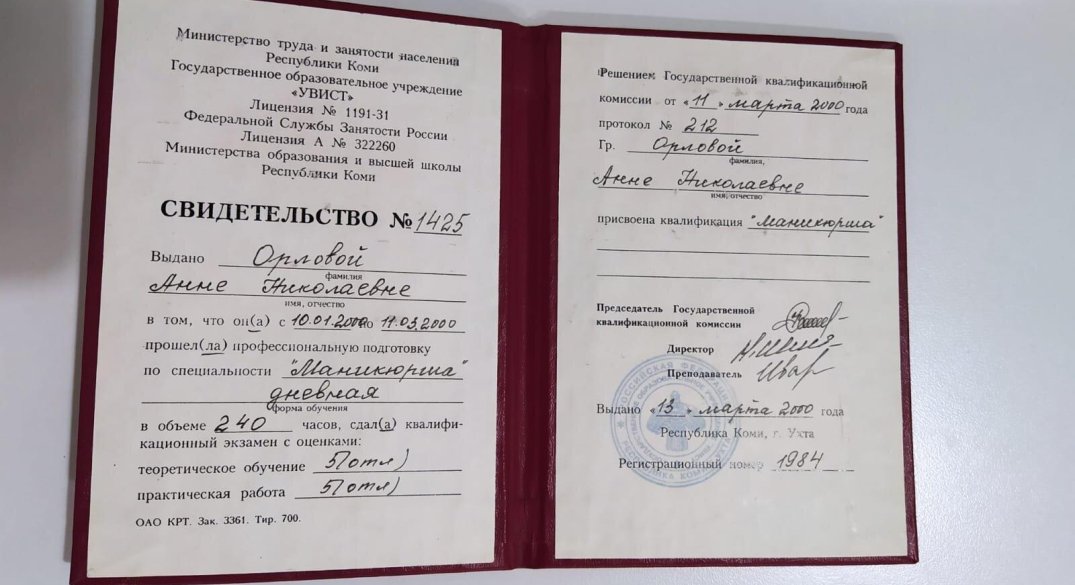 Министерство труда и занятости населения
Республики Коми
Государственное образовательное учреждение
«УВИСТ»
Лицензия № 1191-31
Федеральной Службы Занятости России
Лицензия А № 322260
Министерства образования и высшей школы
Республики Коми
СВИДЕТЕЛЬСТВО № 1425
Выдано Орловой
фамилия
Анне Николаевне
имя, отчество
в том, что он(а) с 10.01.2000 по 11.03.2000
прошел(ла) профессиональную подготовку
по специальности "Маникюрша"
дневная
форма обучения
в объеме 240 часов, сдал(а) квалифи-
кационный экзамен с оценками:
теоретическое обучение 5/отл)
практическая работа 5/отл)
ОАО КРТ. Зак. 3361. Тир. 700.
Решением Государственной квалификационной
комиссии от «11» марта 2000 года
протокол № 212
Гр. Орловой
фамилия,
Анне Николаевне
имя, отчество
присвоена квалификация "Маникюрша"
Председатель Государственной
квалификационной комиссии
Директор
Преподаватель
РОССИЙСКАЯ ФЕДЕРАЦИЯ
Выдано «13» марта 2000 года
Республика Коми, г. Ухта
Регистрационный номер 1984